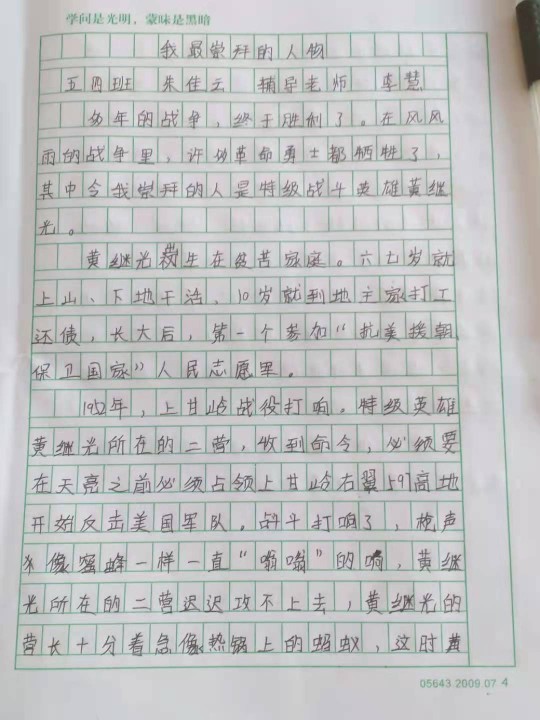 学问是光明，蒙昧是黑暗
我最崇拜的人物
五四班 朱佳云 辅导老师 李慧
多年的战争，终于胜利了。在风风
雨的战争里，许多革命勇士都牺牲了，
其中令我崇拜的人是特级战斗英雄黄继
光。
黄继光生在贫苦家庭。六七岁就
上山、下地干活，10岁就到地主家打工
还债，长大后，第一个参加“抗美援朝，
保卫国家”人民志愿里。
1952年，上甘岭战役打响。特级英雄
黄继光所在的二营，收到命令，必须要
在天亮之前必须占领上甘岭右翼597高地
开始反击美国军队。战斗打响了，枪声
像蜜蜂一样一直“嗡嗡”的响，黄继
光所在的二营迟迟攻不上去，黄继光的
营长十分着急像热锅上的蚂蚁，这时黄
05643.2009.07 4